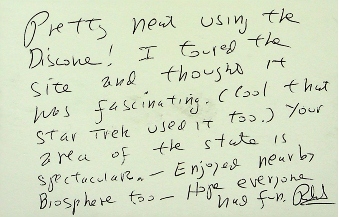 Pretty neat using the
Discone! I toured the
site and thought it
was fascinating. (Cool that
Star Trek used it too.) Your
area of the state is
spectacular — Enjoyed nearby
Biosphere too — Hope everyone
had fun.